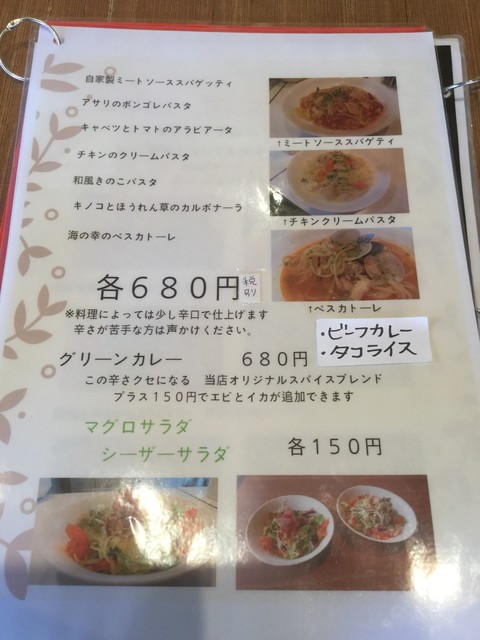 自家製ミートソーススパゲッティ
アサリのボンゴレパスタ
キャベツとトマトのアラビアータ
チキンのクリームパスタ
和風きのこパスタ
キノコとほうれん草のカルボナーラ
海の幸のペスカトーレ
↑ミートソーススパゲティ
↑チキンクリームパスタ
↑ペスカトーレ
各680円 税別
※料理によっては少し辛口で仕上げます
辛さが苦手な方は声かけください。
・ビーフカレー
・タコライス
グリーンカレー 680円
この辛さクセになる 当店オリジナルスパイスブレンド
プラス150円でエビとイカが追加できます
マグロサラダ
シーザーサラダ 各150円